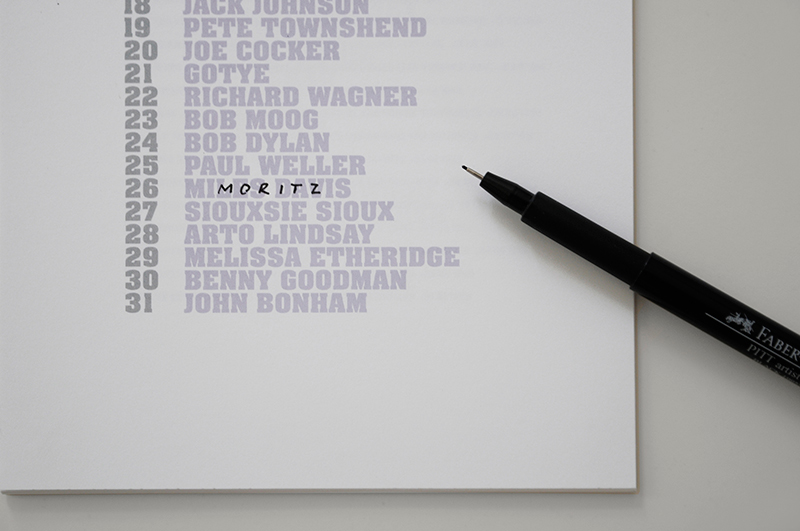 18 JACK JOHNSON
19 PETE TOWNSHEND
20 JOE COCKER
21 GOTYE
22 RICHARD WAGNER
23 BOB MOOG
24 BOB DYLAN
25 PAUL WELLER
26 MILES DAVIS
MORITZ
27 SIOUXSIE SIOUX
28 ARTO LINDSAY
29 MELISSA ETHERIDGE
30 BENNY GOODMAN
31 JOHN BONHAM
FABER
PITT artis